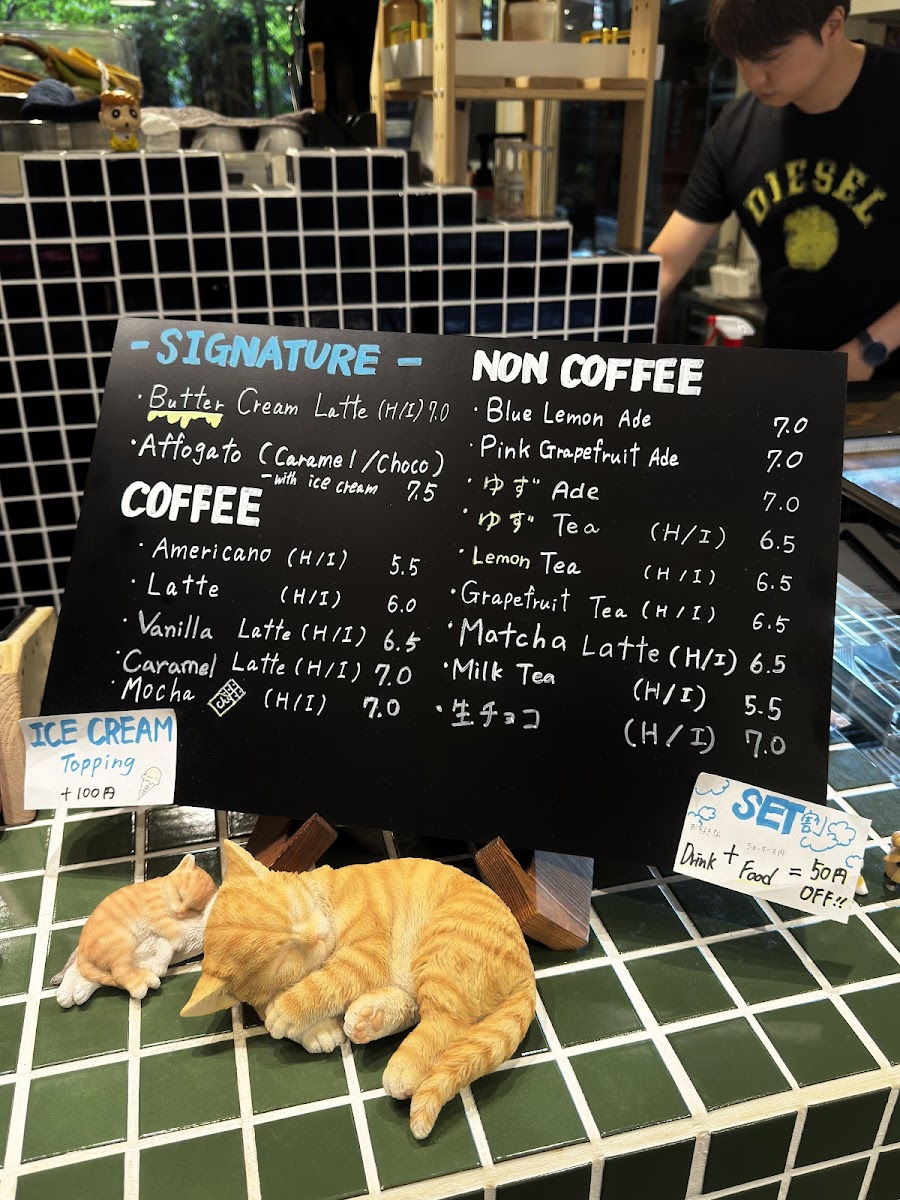 DIESEL
- SIGNATURE -
・Butter Cream Latte (H/I) 7.0
・Affogato (Caramel/Choco)
-with ice cream 7.5
COFFEE
・Americano (H/I) 5.5
・Latte (H/I) 6.0
・Vanilla Latte (H/I) 6.5
・Caramel Latte (H/I) 7.0
・Mocha (H/I) 7.0
NON COFFEE
・Blue Lemon Ade 7.0
・Pink Grapefruit Ade 7.0
・ゆず Ade 7.0
・ゆず Tea (H/I) 6.5
・Lemon Tea (H/I) 6.5
・Grapefruit Tea (H/I) 6.5
・Matcha Latte (H/I) 6.5
・Milk Tea (H/I) 5.5
・生チョコ (H/I) 7.0
ICE CREAM
Topping
+100円
SET割
お好きな
Drink + Food = 50円
OFF!!